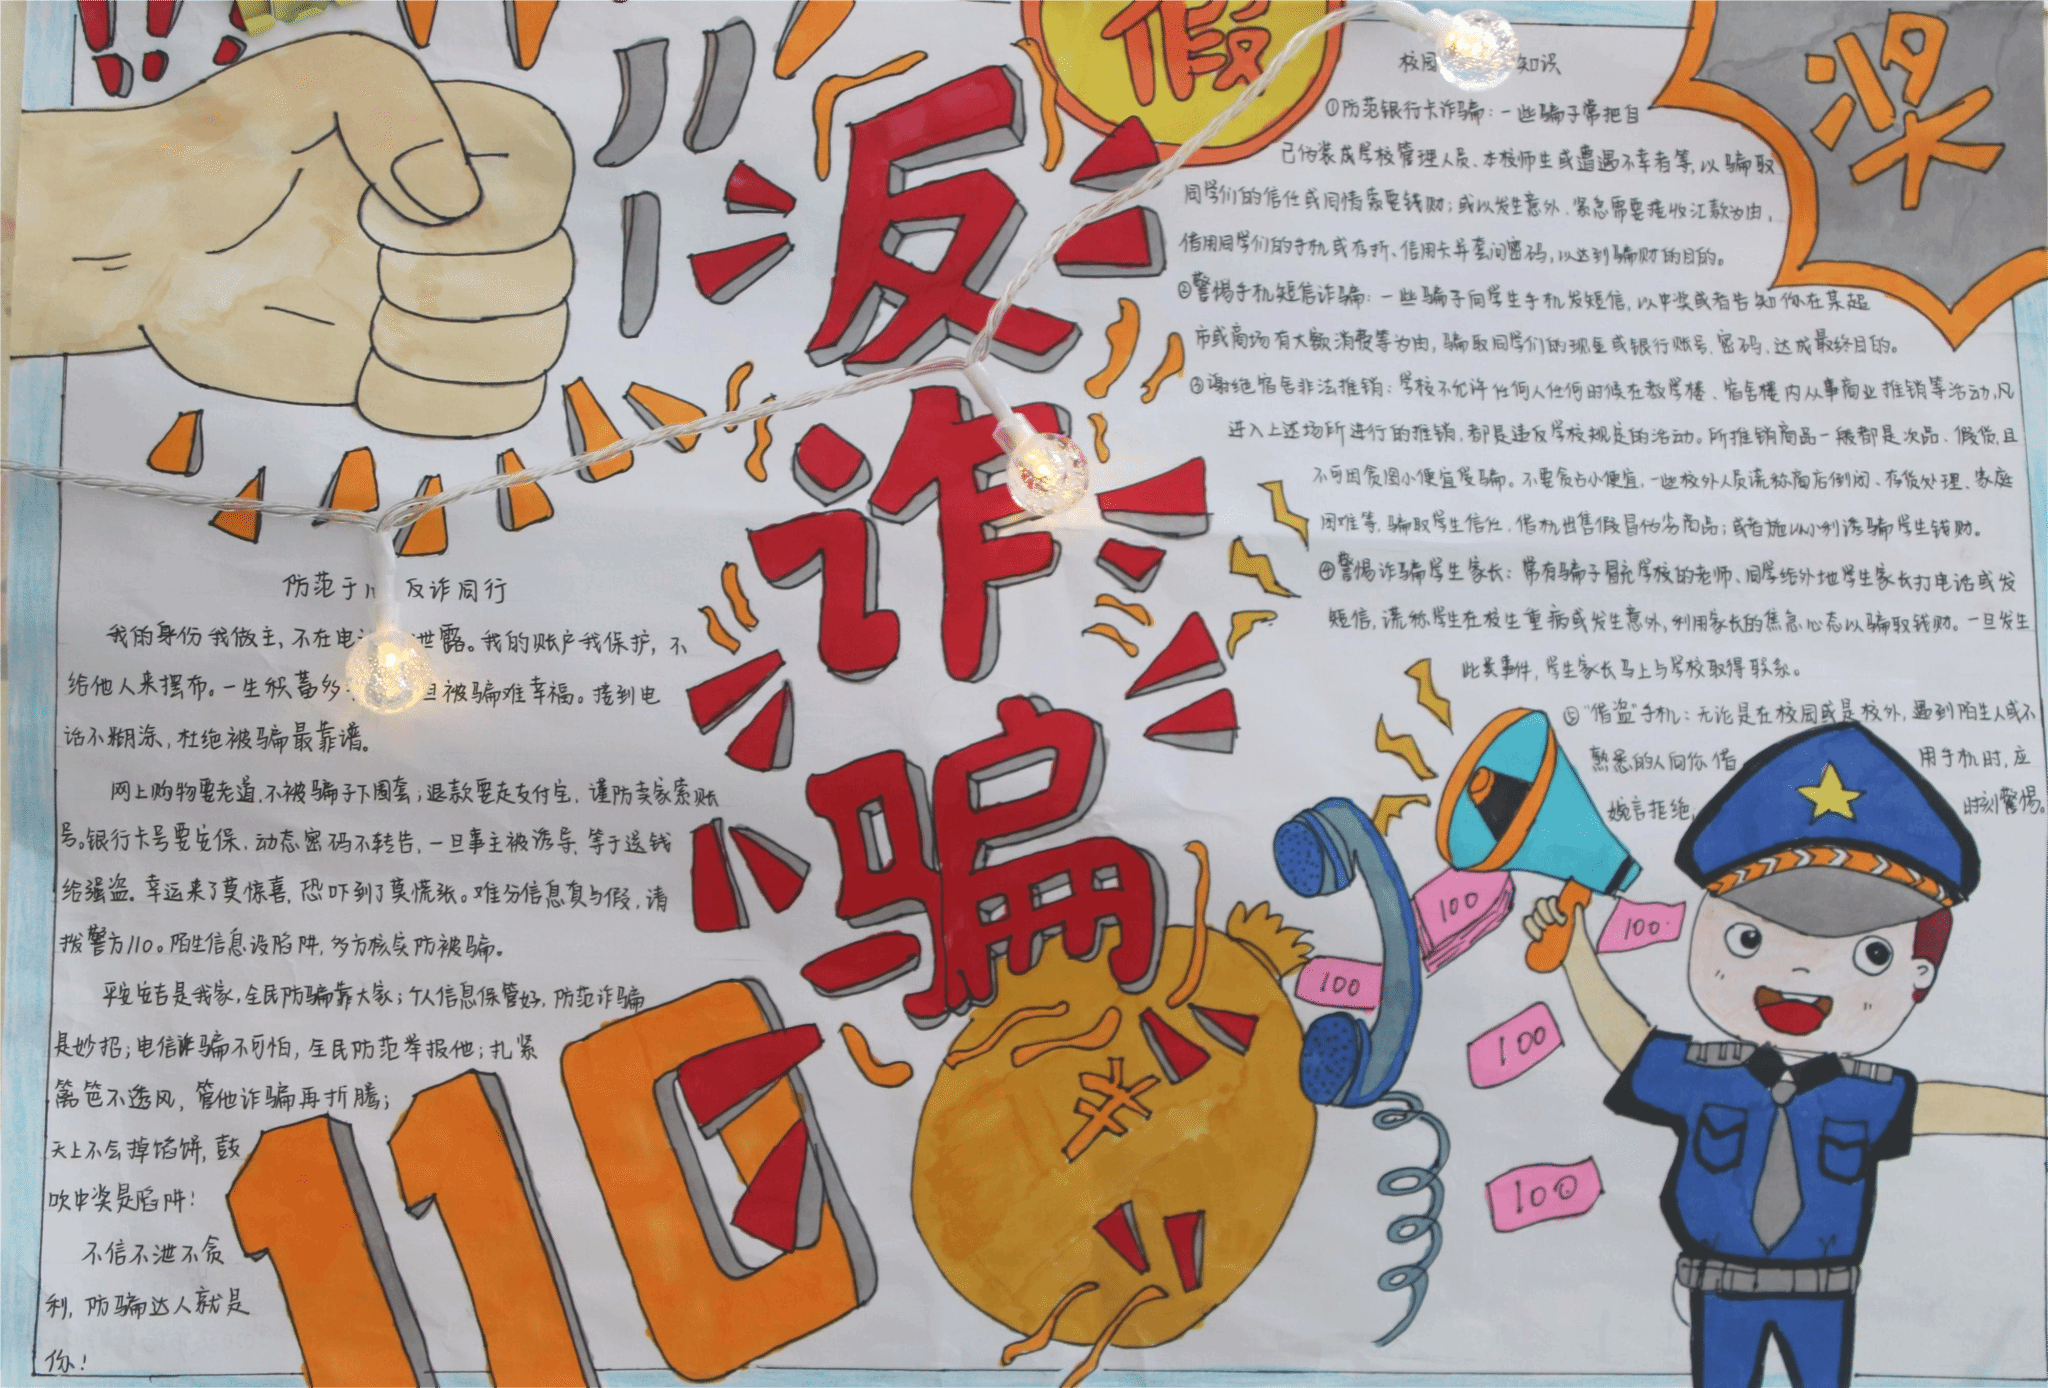 假
奖
反
诈
骗
防范于 反诈同行
我的身份我做主,不在电 泄露。我的账户我保护,不
给他人来摆布。一生积蓄多 旦被骗难幸福。接到电
话不糊涂,杜绝被骗最靠谱。
网上购物要老道,不被骗子下圈套;退款要走支付宝,谨防卖家索账
号。银行卡号要安保,动态密码不转告,一旦事主被诱导,等于送钱
给强盗。幸运来了莫惊喜,恐吓到了莫慌张。难分信息真与假,请
拨警方110。陌生信息设陷阱,多方核实防被骗。
平安吉是我家,全民防骗靠大家;个人信息保管好,防范诈骗
是妙招;电信诈骗不可怕,全民防范举报他;扎紧
篱笆不透风,管他诈骗再折腾;
天上不会掉馅饼,鼓
吹中奖是陷阱!
不信不泄不贪
利,防骗达人就是
你!
110
校园 知识
①防范银行卡诈骗:一些骗子常把自
己伪装成学校管理人员、本校师生或遭遇不幸者等,以骗取
同学们的信任或同情索要钱财;或以发生意外、紧急需要接收汇款为由,
借用同学们的手机或存折、信用卡并套问密码,以达到骗财的目的。
②警惕手机短信诈骗:一些骗子向学生手机发短信,以中奖或者告知你在某超
市或商场有大额消费等为由,骗取同学们的现金或银行账号、密码、达成最终目的。
③谢绝宿舍非法推销:学校不允许任何人任何时候在教学楼、宿舍楼内从事商业推销等活动,凡
进入上述场所进行的推销,都是违反学校规定的活动。所推销商品一般都是次品、假货,且
不可因贪图小便宜受骗。不要贪占小便宜,一些校外人员谎称商店倒闭、存货处理、家庭
困难等,骗取学生信任,借机出售假冒伪劣商品;或者施以小利诱骗学生钱财。
④警惕诈骗学生家长:常有骗子冒充学校的老师、同学给外地学生家长打电话或发
短信,谎称学生在校生重病或发生意外,利用家长的焦急心态以骗取钱财。一旦发生
此类事件,学生家长马上与学校取得联系。
⑤“借盗”手机:无论是在校园或是校外,遇到陌生人或不
熟悉的人向你借 用手机时,应
婉言拒绝, 时刻警惕。
100
100
100
100
100
¥